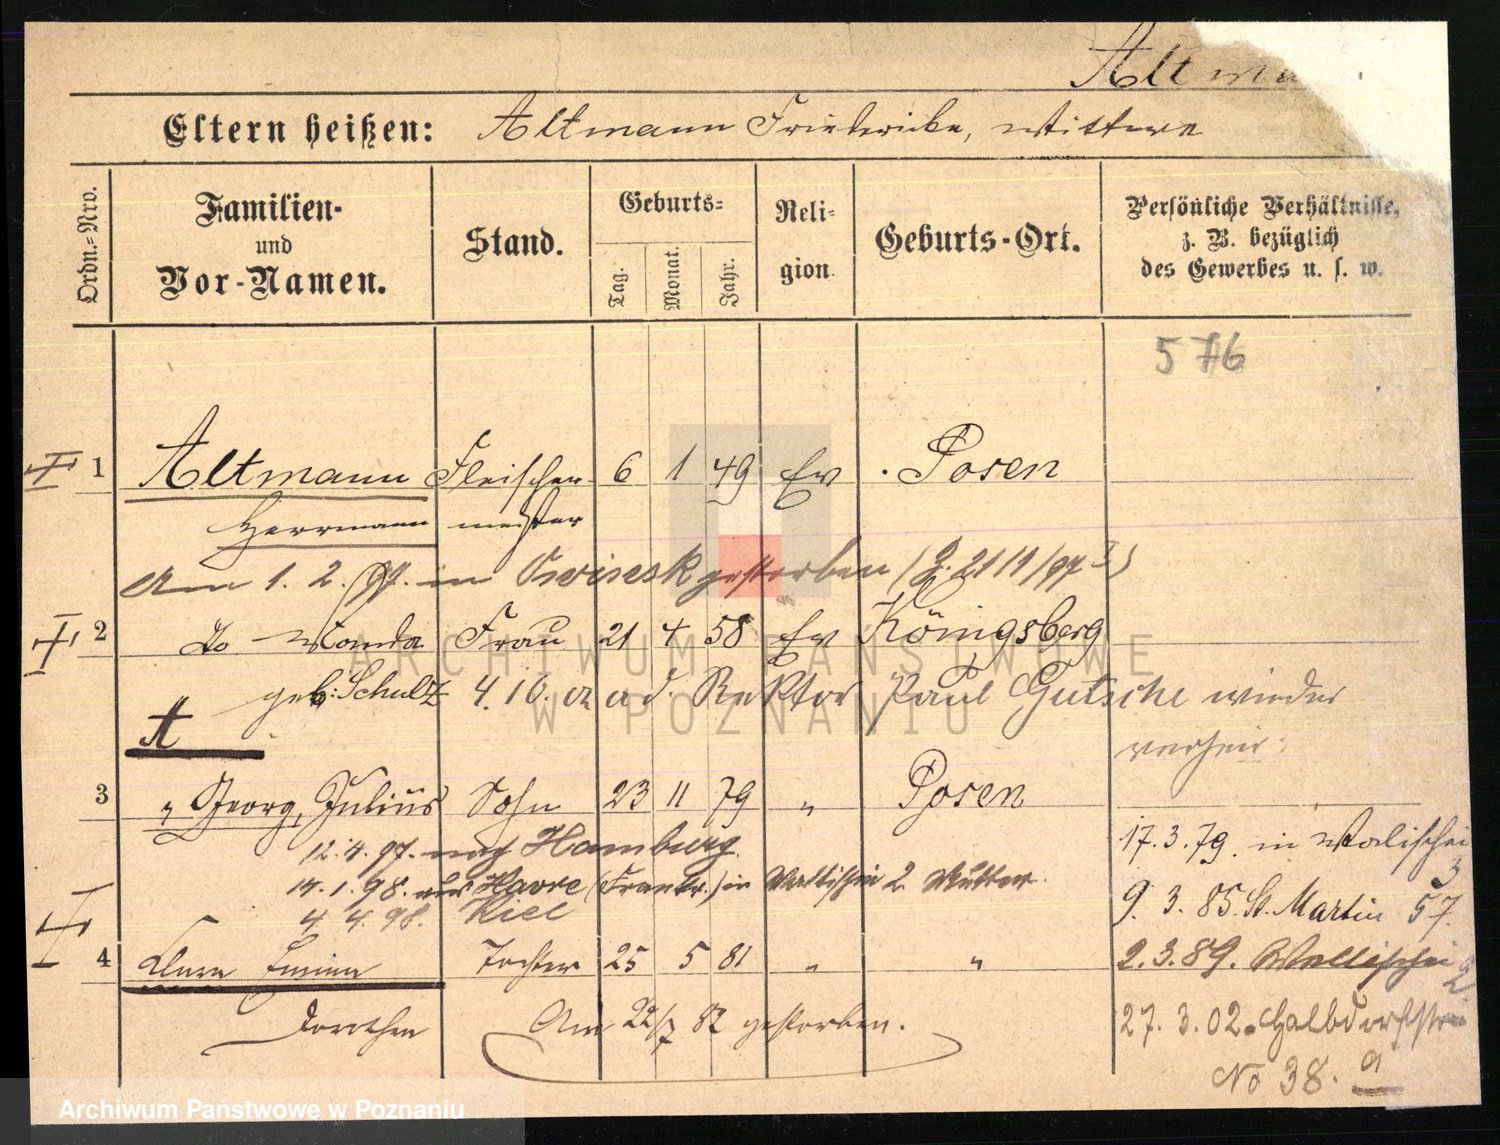 Altma
Eltern heißen: Altmann Friederike, Wittwe
Ordn.=Nro.
Familien-
und
Vor-Namen.
Stand.
Geburts=
Tag.
Monat.
Jahr.
Reli-
gion.
Geburts-Ort.
Persönliche Verhältnisse,
z. B. bezüglich
des Gewerbes u. s. w.
576
1 Altmann Fleischer 6 1 49 Ev. Posen
Herrmann meister
Am 1. 2. 99. in gestorben
2 do Wanda Frau 21 4 58 Ev Königsberg
geb: Schulz 4. 10. 02 a. d. Rektor Paul Gutsche wieder
verheir:
A
3 " Georg, Julius Sohn 23 11 79 " Posen
12. 4. 97. nach Hamburg.
14. 1. 98. aus Havre (Frankr.) in Wallischei 2. Mutter.
4. 4. 98. Kiel
4 Clara Emma Tochter 25 5 81 " "
Dorothea Am 22/7 82 gestorben.
17. 3. 79. in Wallischei
3
9. 3. 85. St. Martin 57.
2. 3. 89. Wallischei
2
27. 3. 02. Halbdorfstr
No 38. a
ARCHIWUM PAŃSTWOWE
W POZNANIU
Archiwum Państwowe w Poznaniu